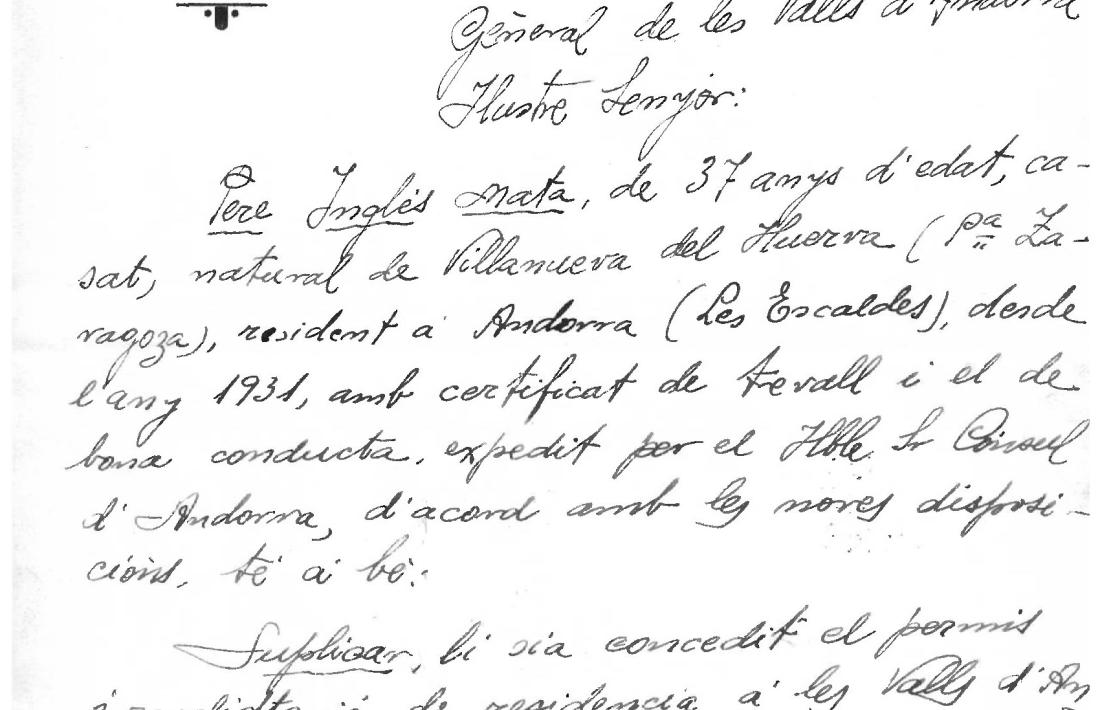 General de les Valls d'Andorra
Ilustre Senyor:
Pere Inglés Mata, de 37 anys d'edat, ca-
sat, natural de Villanueva del Huerva (Pª Za-
ragoza), resident a Andorra (Les Escaldes), desde
l'any 1931, amb certificat de trevall i el de
bona conducta, expedit per el Hble Sr Cònsul
d'Andorra, d'acord amb les noves disposi-
ciòns, té a bé:
Suplicar, li sia concedit el permis
de residencia a les Valls d'An